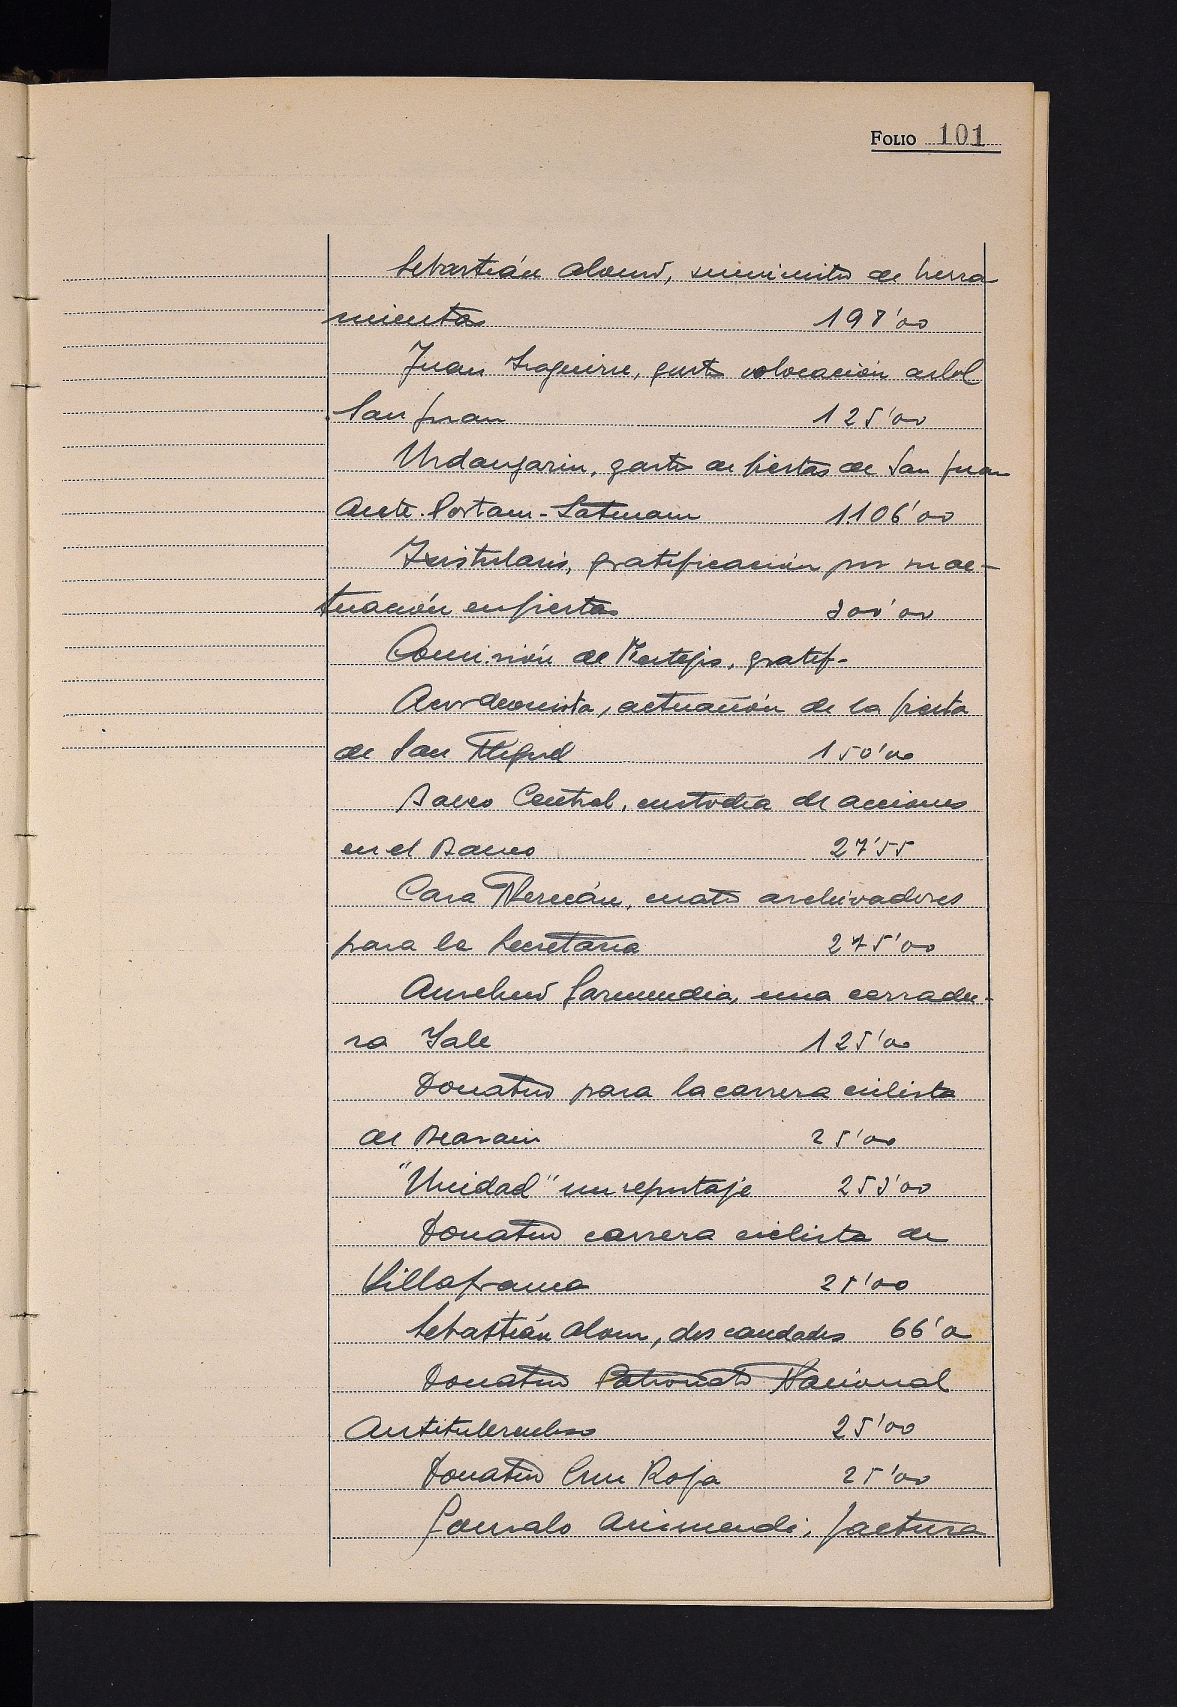 FOLIO 101
Sebastián Alonso, suministro de herra
mientas 198'00
Juan Izaguirre, gasto colocación arbol
San Juan 125'00
Urdangarin, gasto de fiestas de San Juan
Ante-Portam-Latinam 1106'00
Txistularis, gratificación por su ac-
tuación en fiestas 300'00
Comisión de Festejos, gratif-
Acordeonista, actuación de la fiesta
de San Miguel 150'00
Banco Central, custodia de acciones
en el Banco 27'55
Casa Hernán, cuatro archivadores
para la Secretaría 275'00
Aurelio Garmendia, una cerradu-
ra Yale 125'00
Donativo para la carrera ciclista
de Beasain 25'00
"Unidad" un reportaje 253'00
Donativo carrera ciclista de
Villafranca 25'00
Sebastián Alonso, dos candados 66'00
Donativo Patronato Nacional
Antituberculoso 25'00
Donativo Cruz Roja 25'00
Gonzalo Arizmendi, factura